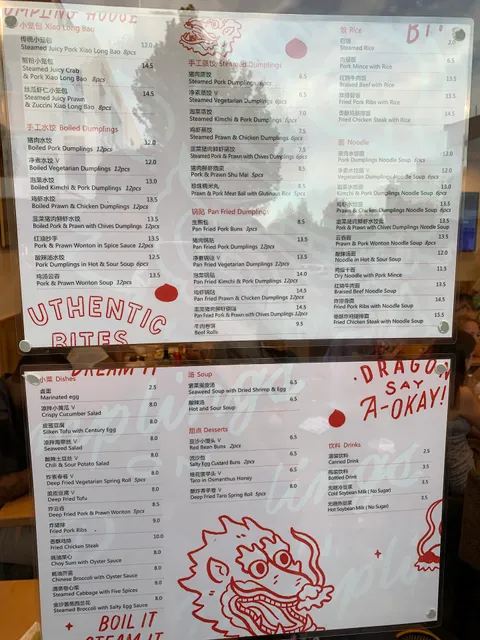 DUMPLING HOUSE
小笼包 Xiao Long Bao
传统小笼包 12.0
Steamed Juicy Pork Xiao Long Bao 8pcs
蟹粉小笼包 14.5
Steamed Juicy Crab
& Pork Xiao Long Bao 8pcs
丝瓜虾仁小笼包 14.5
Steamed Juicy Prawn
& Zuccini Xiao Long Bao 8pcs
手工水饺 Boiled Dumplings
猪肉水饺 12.0
Boiled Pork Dumplings 12pcs
净素水饺 V 12.0
Boiled Vegetarian Dumplings 12pcs
泡菜水饺 13.0
Boiled Kimchi & Pork Dumplings 12pcs
鸡虾水饺 13.5
Boiled Prawn & Chicken Dumplings 12pcs
韭菜猪肉鲜虾水饺 13.5
Boiled Pork & Prawn with Chives Dumplings 12pcs
红油抄手 13.5
Pork & Prawn Wonton in Spice Sauce 12pcs
酸辣汤水饺 13.5
Pork Dumplings in Hot & Sour Soup 6pcs
鸡汤云吞 13.5
Pork & Prawn Wonton Soup 12pcs
手工蒸饺 Steamed Dumplings
猪肉蒸饺 6.5
Steamed Pork Dumplings
净素蒸饺 V 6.5
Steamed Vegetarian Dumplings 6pcs
泡菜蒸饺 7.0
Steamed Kimchi & Pork Dumplings 6pcs
鸡虾蒸饺 7.5
Steamed Prawn & Chicken Dumplings 6pcs
韭菜猪肉鲜虾蒸饺 7.5
Steamed Pork & Prawn with Chives Dumplings 6pcs
猪肉鲜虾烧卖 8.5
Pork & Prawn Shu Mai 5pcs
珍珠糯米丸 8.5
Prawn & Pork Meat Ball with Glutinous Rice 5pcs
锅贴 Pan Fried Dumplings
生煎包 8.5
Pan Fried Pork Buns 3pcs
猪肉锅贴 13.5
Pan Fried Pork Dumplings 12pcs
净素锅贴 V 13.5
Pan Fried Vegetarian Dumplings 12pcs
泡菜锅贴 14.0
Pan Fried Kimchi & Pork Dumplings 12pcs
鸡虾锅贴 14.5
Pan Fried Prawn & Chicken Dumplings 12pcs
韭菜猪肉鲜虾锅贴 14.5
Pan Fried Pork & Prawn with Chives Dumplings 12pcs
牛肉卷饼 9.5
Beef Rolls
饭 Rice
BI
白饭 2.0
Steamed Rice
肉燥饭 6.5
Pork Mince with Rice
红烧牛肉饭 13.5
Braised Beef with Rice
炸排骨饭 13.5
Fried Pork Ribs with Rice
香酥鸡排饭 14.5
Fried Chicken Steak with Rice
面 Noodle
猪肉水饺面 12.0
Pork Dumplings Noodle Soup 6pcs
净素水饺面 V 12.0
Vegetarian Dumplings Noodle Soup 6pcs
泡菜水饺面 13.0
Kimchi & Pork Dumplings Noodle Soup 6pcs
鸡虾水饺面 13.5
Prawn & Chicken Dumplings Noodle Soup 6pcs
韭菜猪肉鲜虾水饺面 13.5
Pork & Prawn with Chives Dumplings Noodle Soup
云吞面 13.5
Prawn & Pork Wonton Noodle Soup 6pcs
酸辣汤面 12.0
Noodle in Hot & Sour Soup
肉燥干面 11.5
Dry Noodle with Pork Mince
红烧牛肉面 13.5
Braised Beef Noodle Soup
炸排骨面 14.5
Fried Pork Ribs with Noodle Soup
香酥炸鸡腿排面 15.5
Fried Chicken Steak with Noodle Soup
UTHENTIC
BITES
DREAM IT
小菜 Dishes
卤蛋 2.5
Marinated egg
凉拌小黄瓜 V 8.0
Crispy Cucumber Salad
皮蛋豆腐 8.0
Silken Tofu with Century Egg
凉拌海带丝 V 8.0
Seaweed Salad
酸辣土豆丝 V 8.0
Chili & Sour Potato Salad
炸素春卷 V 8.0
Deep Fried Vegetarian Spring Roll 5pcs
脆皮豆腐 V 8.0
Deep Fried Tofu
炸云吞 8.5
Deep Fried Pork & Prawn Wonton 5pcs
炸猪排 9.0
Fried Pork Ribs
香酥鸡排 10.0
Fried Chicken Steak
蚝油菜心 8.0
Choy Sum with Oyster Sauce
蚝油芥蓝 8.0
Chinese Broccoli with Oyster Sauce
清蒸卷心菜 8.0
Steamed Cabbage with Five Spices
金沙酱焗西兰花 8.0
Steamed Broccoli with Salty Egg Sauce
BOIL IT
STEAM IT
汤 Soup
紫菜蛋皮汤 6.5
Seaweed Soup with Dried Shrimp & Egg
酸辣汤 6.5
Hot and Sour Soup
甜点 Desserts
豆沙小馒头 V 6.5
Red Bean Buns 2pcs
流沙包 6.5
Salty Egg Custard Buns 2pcs
桂花蜜芋头 V 6.5
Taro in Osmanthus Honey
酥炸香芋卷 V 8.0
Deep Fried Taro Spring Roll 5pcs
DRAGON
SAY
A-OKAY!
饮料 Drinks
灌装饮料 2.5
Canned Drink
瓶装饮料 3.5
Bottled Drink
无糖冷豆浆 3.5
Cold Soybean Milk ( No Sugar)
无糖热豆浆 3.5
Hot Soybean Milk ( No Sugar)